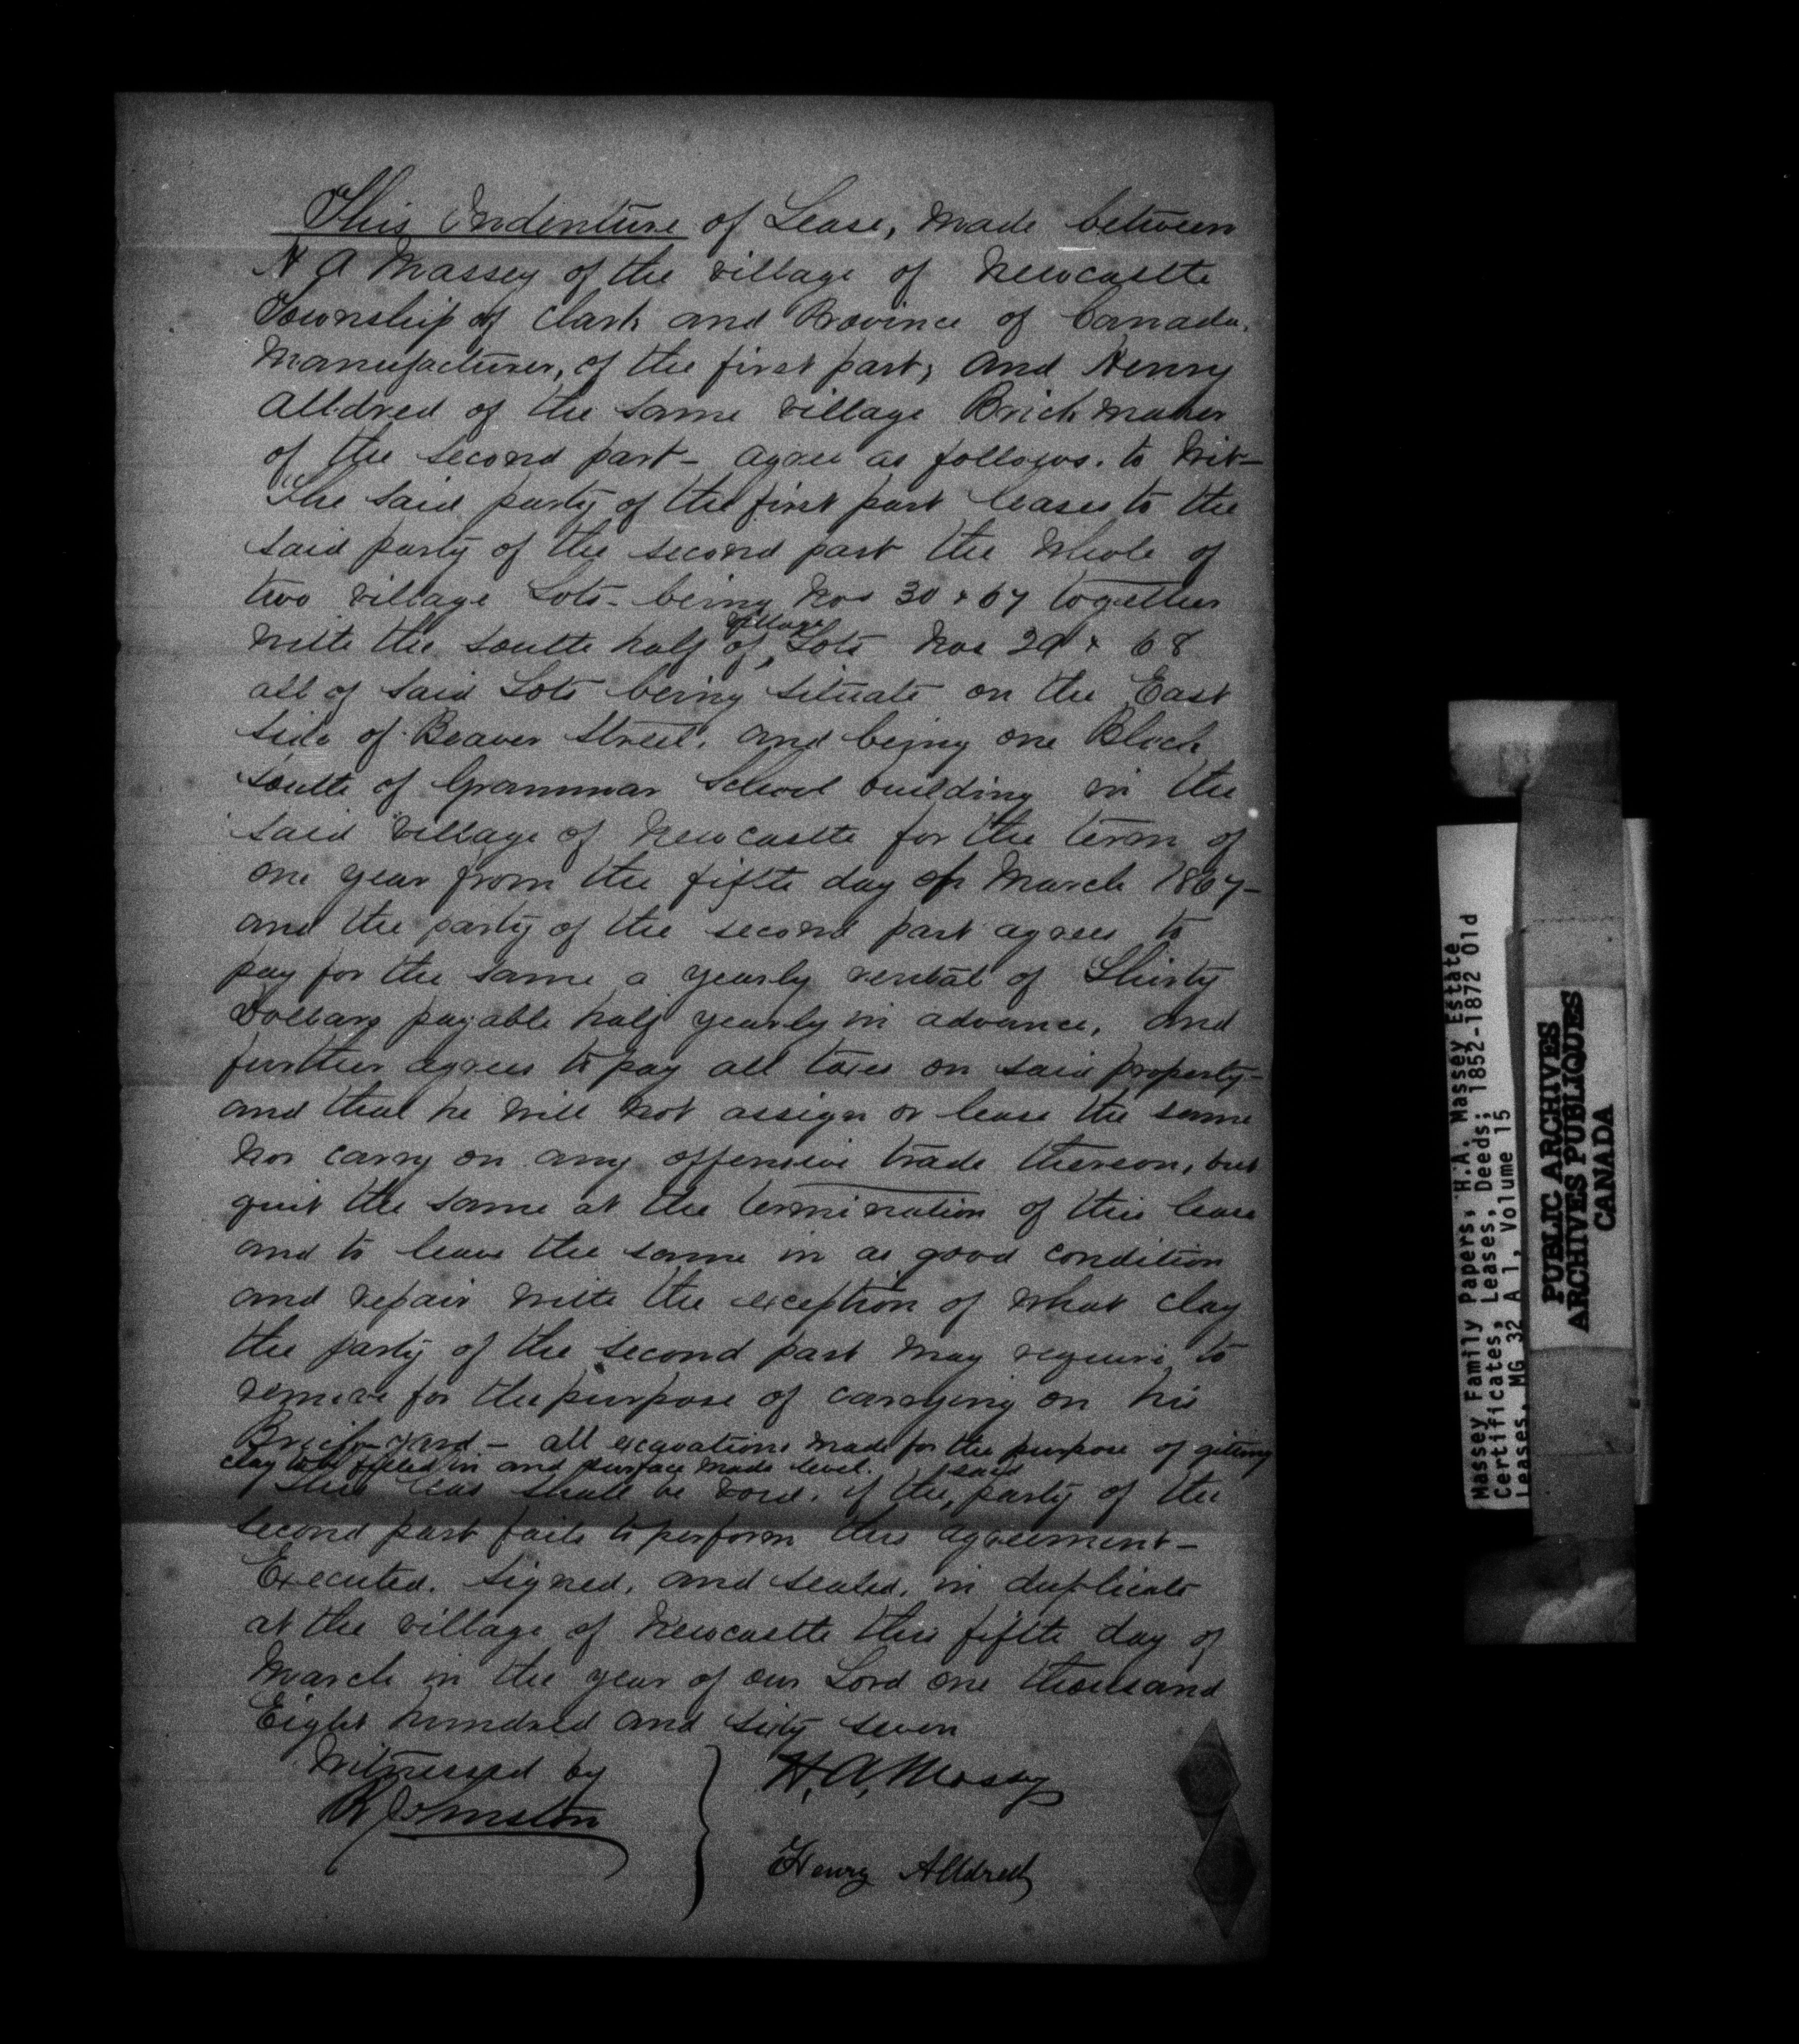 This Indenture of Lease, made between
H A Massey of the village of Newcastle
Township of Clark and Province of Canada.
Manufacturer, of the first part, and Henry
Alldred of the same village Brick maker
of the second part - agree as follows. to Wit -
The said party of the first part leases to the
said party of the second part the whole of
two village Lots - being Nos 30 & 67 together
with the south half of village Lots Nos 29 & 68
all of said Lots being situate on the East
side of Beaver Street, and being one Block
South of Grammar School building in the
said village of Newcastle for the term of
one year from the fifth day of March 1867 -
and the party of the second part agrees to
pay for the same a yearly rental of Thirty
Dollars payable half yearly in advance, and
further agrees to pay all taxes on said property -
and that he will not assign or lease the same
nor carry on any offensive trade thereon, but
quit the same at the termination of this lease
and to leave the same in as good condition
and repair with the exception of what clay
the party of the second part may require to
remove for the purpose of carrying on his
Brick-yard - all excavations made for the purpose of getting
clay to be filled in and surface made level.
This leas shall be void. if the said party of the
second part fails to perform this agreement -
Executed. signed. and sealed. in duplicate
at the village of Newcastle this fifth day of
March in the year of our Lord one thousand
Eight hundred and sixty seven
Witnessed by
H. A. Massey
R Johnston
Henry Alldred
Massey Family Papers, H.A. Massey Estate
Certificates, Leases, Deeds; 1852-1872 Old
Leases, MG 32 A 1, Volume 15
PUBLIC ARCHIVES
ARCHIVES PUBLIQUES
CANADA